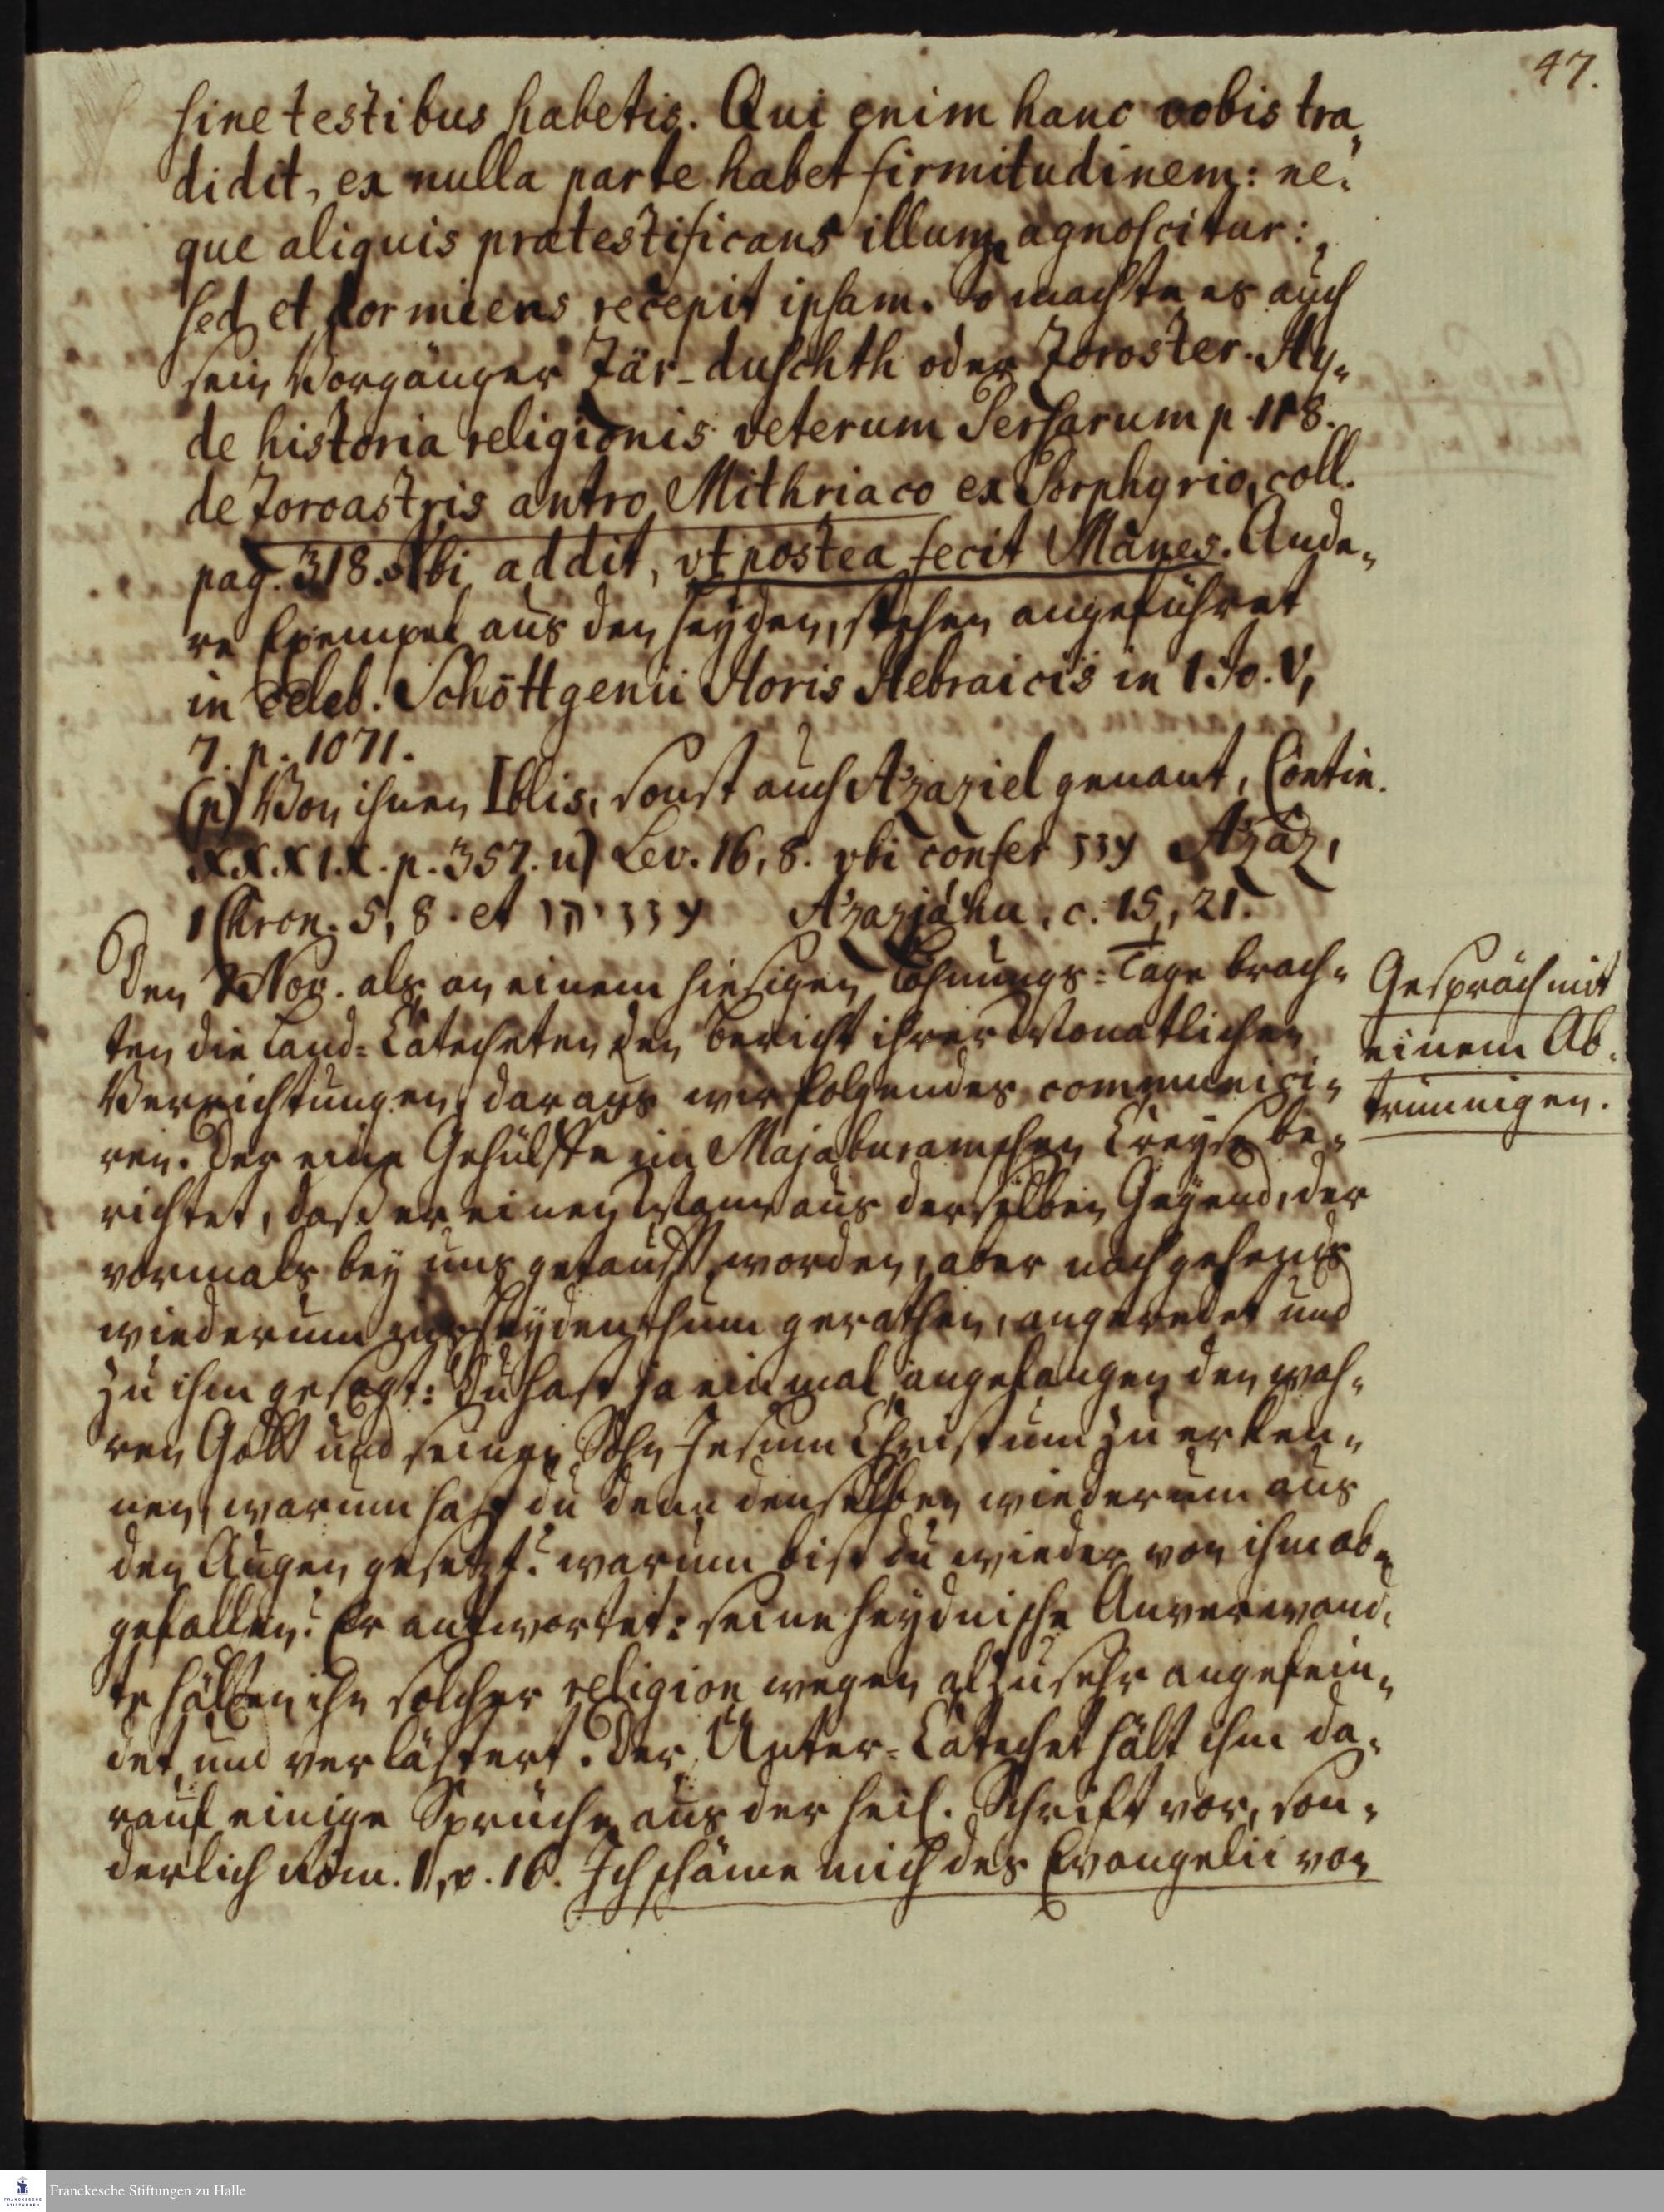 47.
sine testibus habetis. Qui enim hanc vobis tra„
didit, ex nulla parte habet firmitudinem: ne„
que aliquis pratestificans illum agnoscitur:
sed et dormiens recepit ipsam. So machte es auch
sein Vorgänger Zär-duschth oder Zoroster. Hy„
de historia religionis veterum Persarum p. 118.
de Zoroastris antro Mithriaco ex Porphyrio, coll.
pag. 318. Vbi addit, vt postea fecit Mânes. Ande„
re Exempel aus den Heyden, stehen angeführet
in celeb. Schöttgenii Horis Hebraicis in 1 Jo. V,
7. p. 1071.
(p) Von ihnen Iblis, sonst auch Azaziel genant, Contin.
XXXIX. p. 357. u) Lev. 16, 8. vbi confer עזז Azáz,
1 Chron. 5, 8. et עזזיהו Azazjáhu, c. 15, 21.
Den 2 Nov. als an einem hiesigen Löhnungs-Tage brach„
ten die Land-Catecheten den Bericht ihrer Monatlichen
Verrichtungen, daraus wir folgendes communici„
ren. Der eine Gehülffe im Majaburamschen Creyse be„
richtet, daß er einen Mann aus derselben Gegend, der
vormals bey uns getaufft worden, aber nachgehends
wiederum ins Heydenthum gerathen, angeredet und
zu ihm gesagt: Du hast ja einmal angefangen den wah„
ren Gott und seinen Sohn Jesum Christum zu erken„
nen, warum hast du denn denselben wiederum aus
den Augen gesetzt? warum bist du wieder von ihm ab„
gefallen? Er antwortet: seine heydnische Anverwand„
te hätten ihn solcher religion wegen alzusehr angefein„
det und verlästert. Der Unter-Catechet hält ihm da„
rauf einige Sprüche aus der heil. Schrift vor, son„
derlich Röm. 1, v. 16. Ich schäme mich des Evangelii von
Gespräch mit
einem Ab„
trünnigen.
Franckesche Stiftungen zu Halle